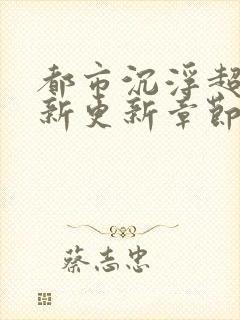 都市沉浮超
新更新章节
蔡志忠